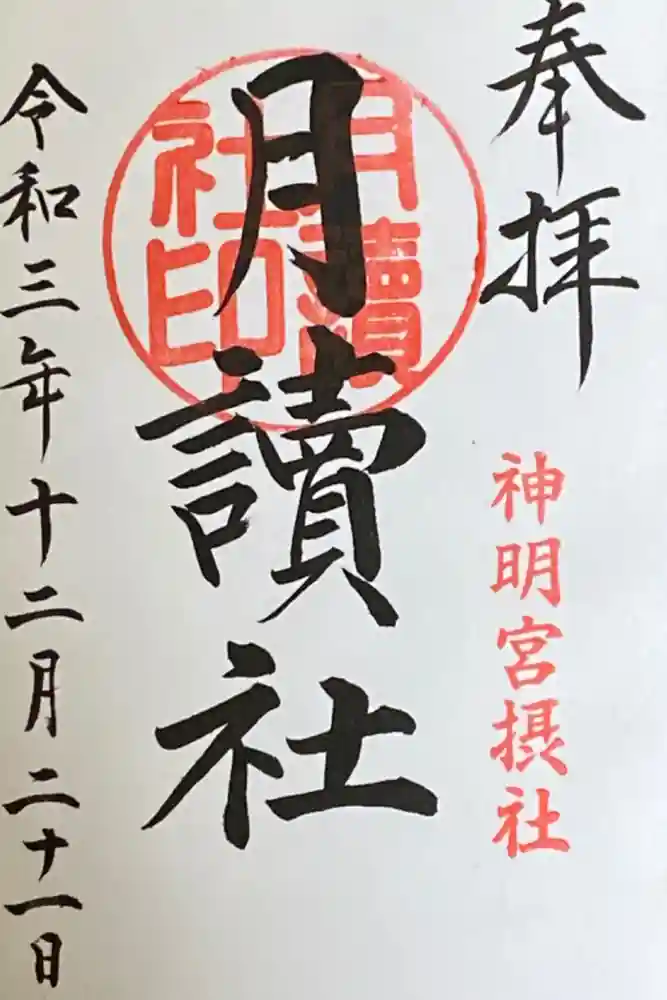 奉拝
神明宮摂社
月讀社
月讀
社印
令和三年十二月二十一日